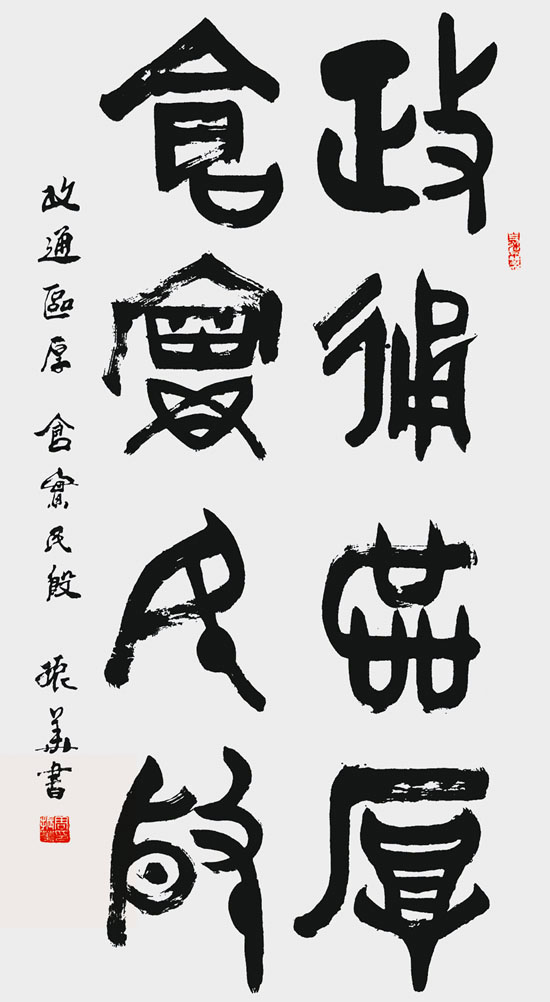 政通區厚
倉實民殷
政通區厚 倉實民殷 振美書